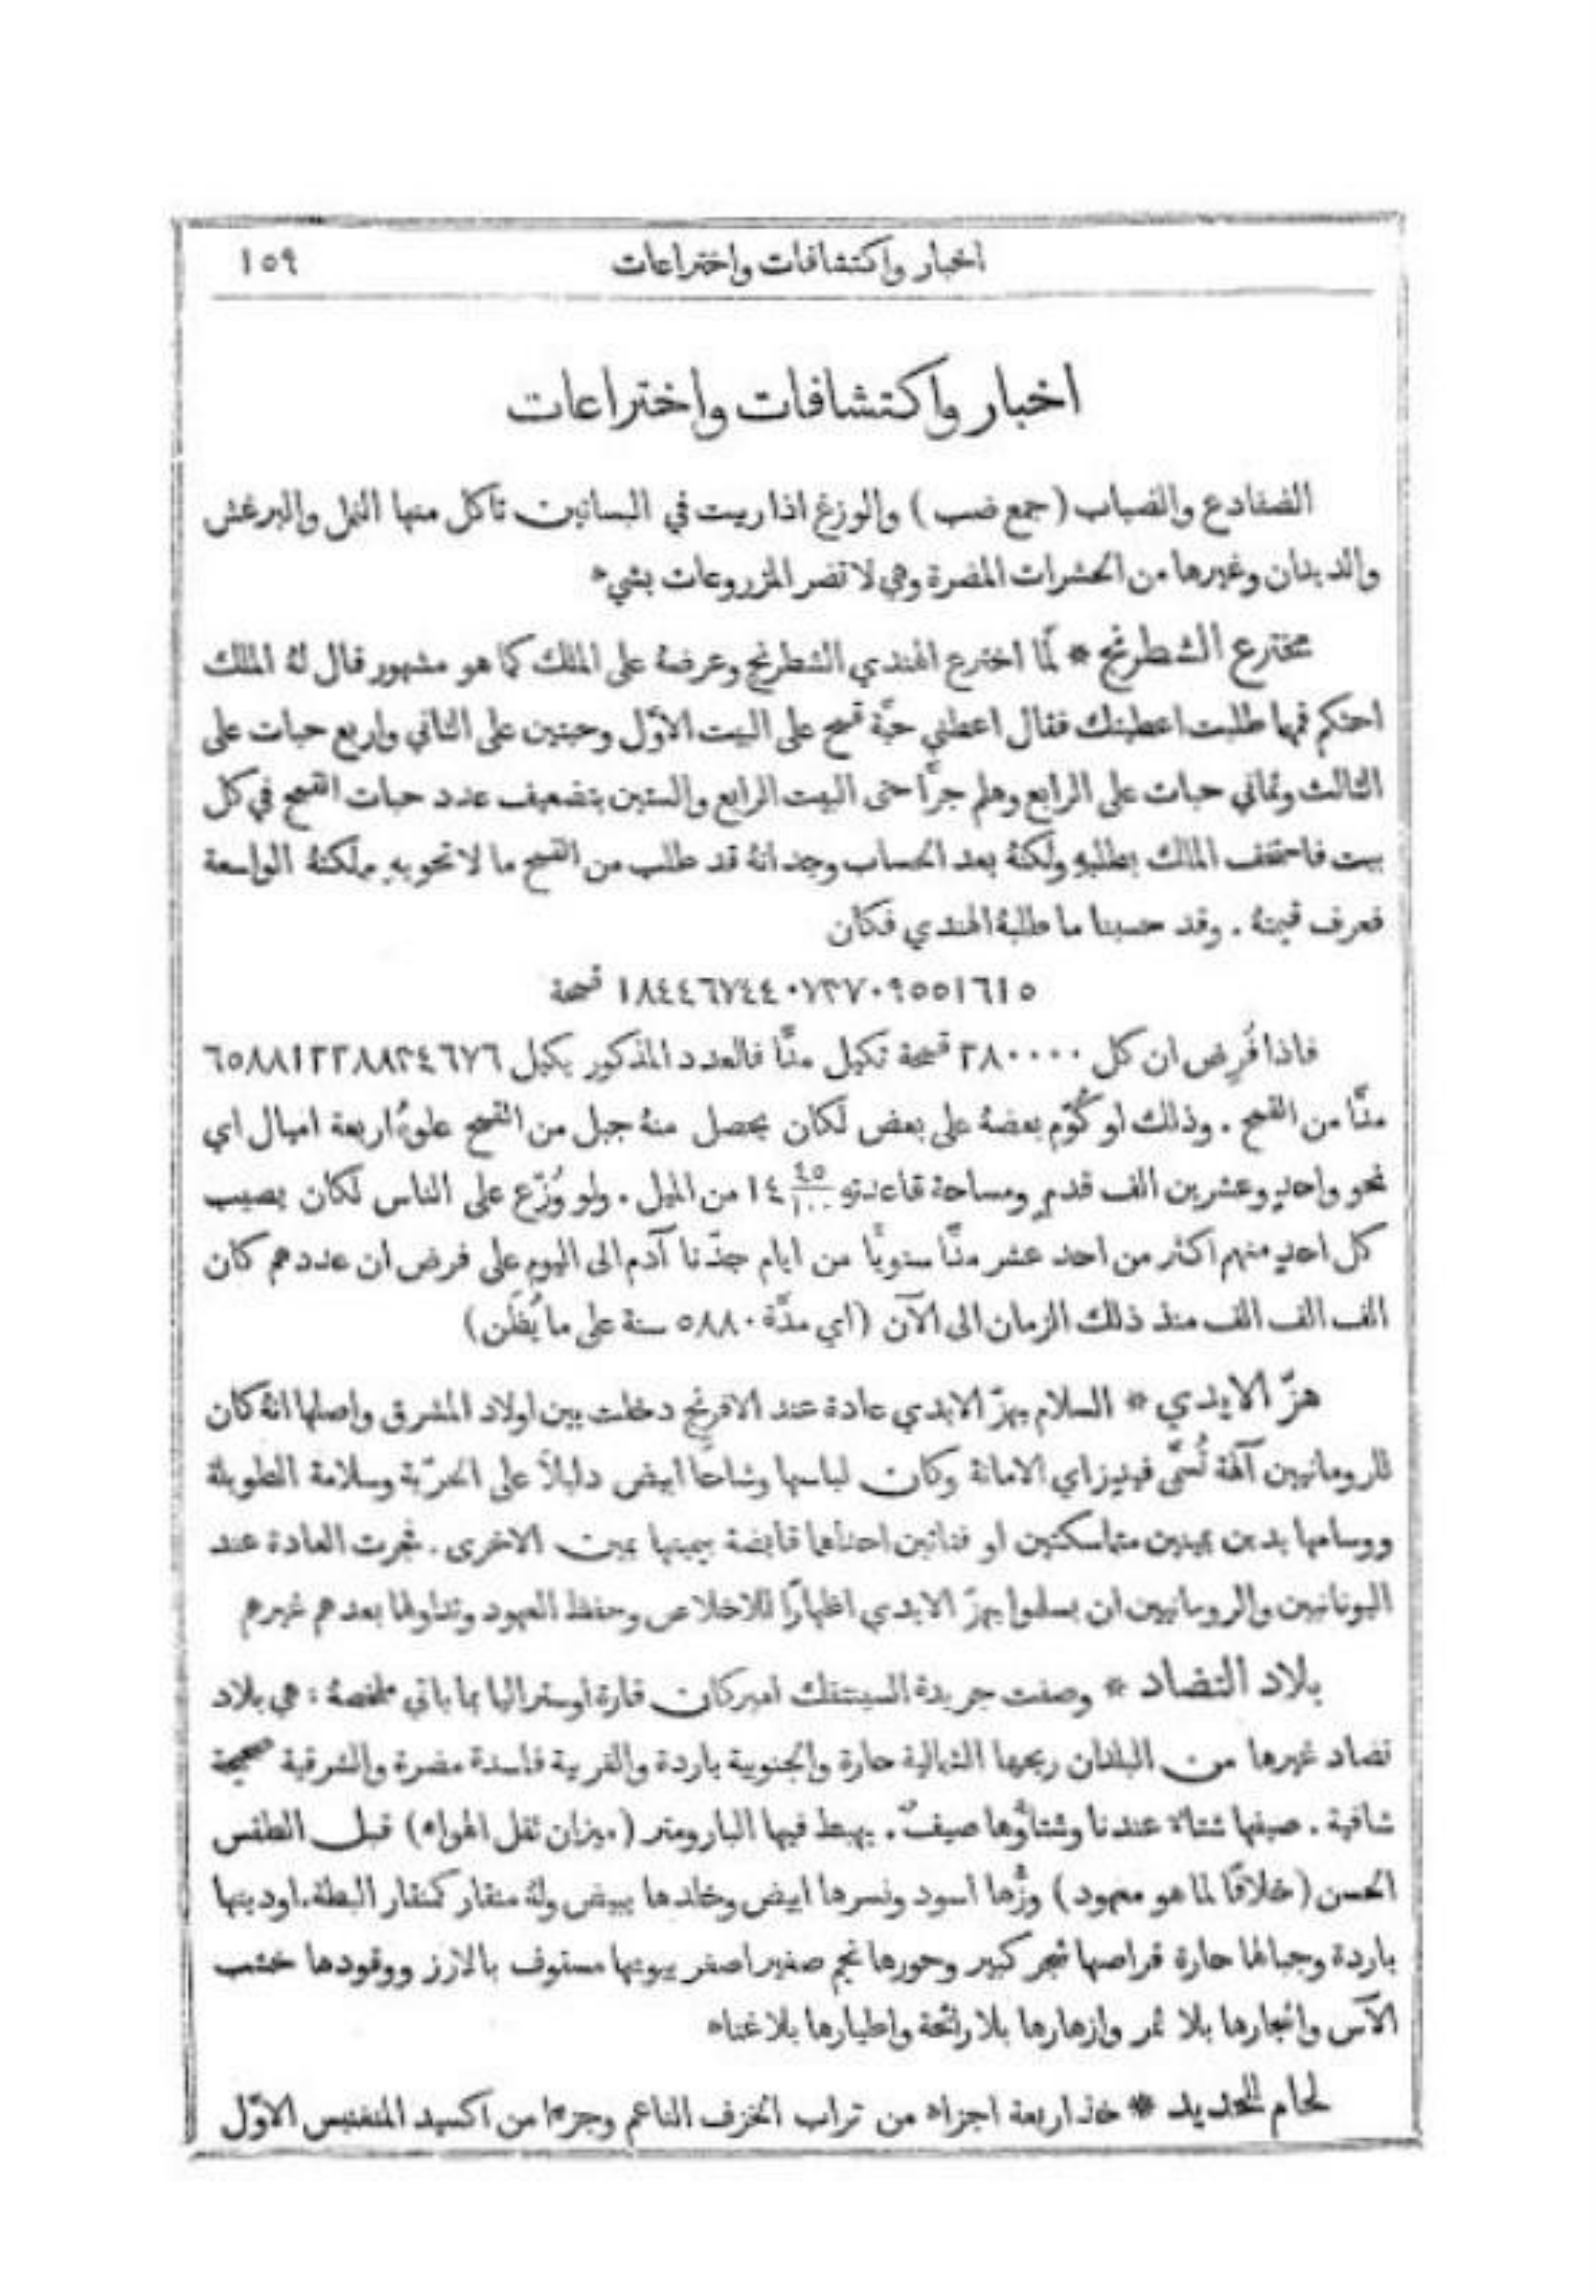 اخبار واكتشافات واختراعات ١٥٩
اخبار واكتشافات واختراعات
الضفادع والضباب (جمع ضب) والوزغ اذا ربيت في البساتين تاكل منها النمل والبرغش
والديدان وغيرها من الحشرات المضرة وهي لا تضر المزروعات بشيء
مخترع الشطرنج * لمَّا اخترع الهندي الشطرنج وعرضهُ على الملك كما هو مشهور قال لهُ الملك
احتكم فمهما طلبت اعطيتك فقال اعطني حبَّة قمح على البيت الأوَّل وحبتين على الثاني واربع حبات على
الثالث وثماني حبات على الرابع وهلم جرًّا حتى البيت الرابع والستين بتضعيف عدد حبات القمح في كل
بيت فاستخف الملك بطلبهِ ولكنهُ بعد الحساب وجد انهُ قد طلب من القمح ما لا تحويهِ مملكتهُ الواسعة
فعرف قيمتهُ . وقد حسبنا ما طلبهُ الهندي فكان
١٨٤٤٦٧٤٤٠٧٣٧٠٩٥٥١٦١٥ قمحة
فاذا فُرِض ان كل ٢٨٠٠٠٠ قمحة تكيل منًّا فالعدد المذكور يكيل ٦٥٨٨١٢٢٨٨٣٤٦٧٦
منًّا من القمح . وذلك لو كُوّم بعضهُ على بعض لكان يحصل منهُ جبل من القمح علوهُ اربعة اميال اي
نحو واحدٍ وعشرين الف قدمٍ ومساحة قاعدتهِ ١٤ ٤٥/١٠٠ من الميل . ولو وُزّع على الناس لكان يصيب
كل احدٍ منهم اكثر من احد عشر منًّا سنويًّا من ايام جدّنا آدم الى اليوم على فرض ان عددهم كان
الف الف الف منذ ذلك الزمان الى الآن (اي مدَّة ٥٨٨٠ سنة على ما يُظَن)
هزّ الايدي * السلام بهزّ الايدي عادة عند الافرنج دخلت بين اولاد المشرق واصلها انهُ كان
للرومانيين آلهة تُسمَّى فيديز اي الامانة وكان لباسها وشاحًا ابيض دليلاً على الحرّية وسلامة الطوية
ووسامها يدين يمينين متماسكتين او فتاتين احداهما قابضة بيمينها يمين الاخرى . فجرت العادة عند
اليونانيين والرومانيين ان يسلموا بهزّ الايدي اظهارًا للاخلاص وحفظ العهود وتداولها بعدهم غيرهم
بلاد التضاد * وصفت جريدة السينتفك اميركان قارة اوستراليا بما ياتي ملخصهُ : هي بلاد
تضاد غيرها من البلدان ريحها الشمالية حارة والجنوبية باردة والغربية فاسدة مضرة والشرقية صحيحة
شافية . صيفها شتاء عندنا وشتاؤُها صيفٌ . يهبط فيها البارومتر (ميزان ثقل الهواء) قبل الطقس
الحسن (خلافًا لما هو معهود) وزُّها اسود ونسرها ابيض وخلدها يبيض ولهُ منقار كمنقار البطة . اوديتها
باردة وجبالها حارة قراصها شجر كبير وحورها نجم صغير اصفر بيوتها مسقوف بالارز ووقودها خشب
الآس واشجارها بلا ثمر وازهارها بلا رائحة واطيارها بلا غناء
لحام للحديد * خذ اربعة اجزاء من تراب الخزف الناعم وجزءًا من اكسيد المنغنيس الاوّل